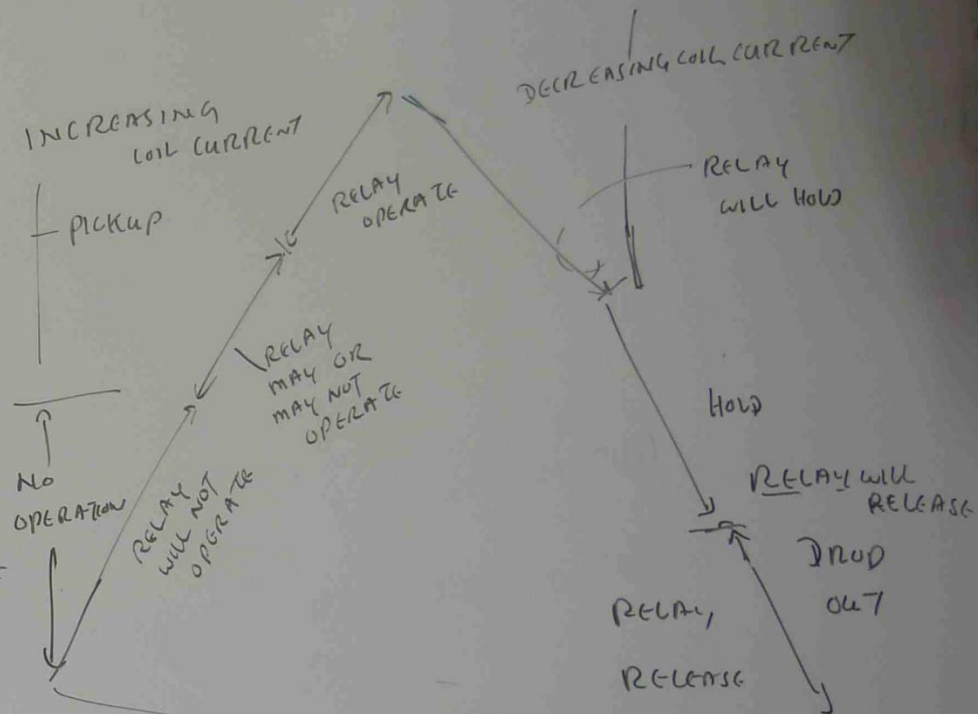 INCREASING
COIL CURRENT
PICKUP
NO
OPERATION
RELAY
WILL NOT
OPERATE
RELAY
MAY OR
MAY NOT
OPERATE
RELAY
OPERATE
DECREASING COIL CURRENT
RELAY
WILL HOLD
HOLD
RELAY WILL
RELEASE
DROP
OUT
RELAY
RELEASE